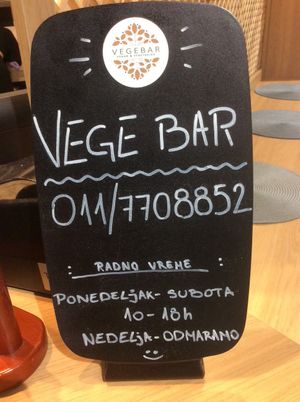 VEGEBAR
VEGE BAR
011/7708852
: RADNO VREME :
PONEDELJAK- SUBOTA
10-18h
NEDELJA- ODMARAMO